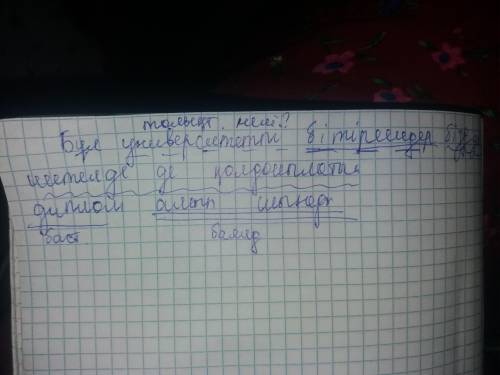 толықт. нені?
Бұл университетті бітірсеңдер
шетелде де қолданылатын
диплом алып шығады
баст баянд